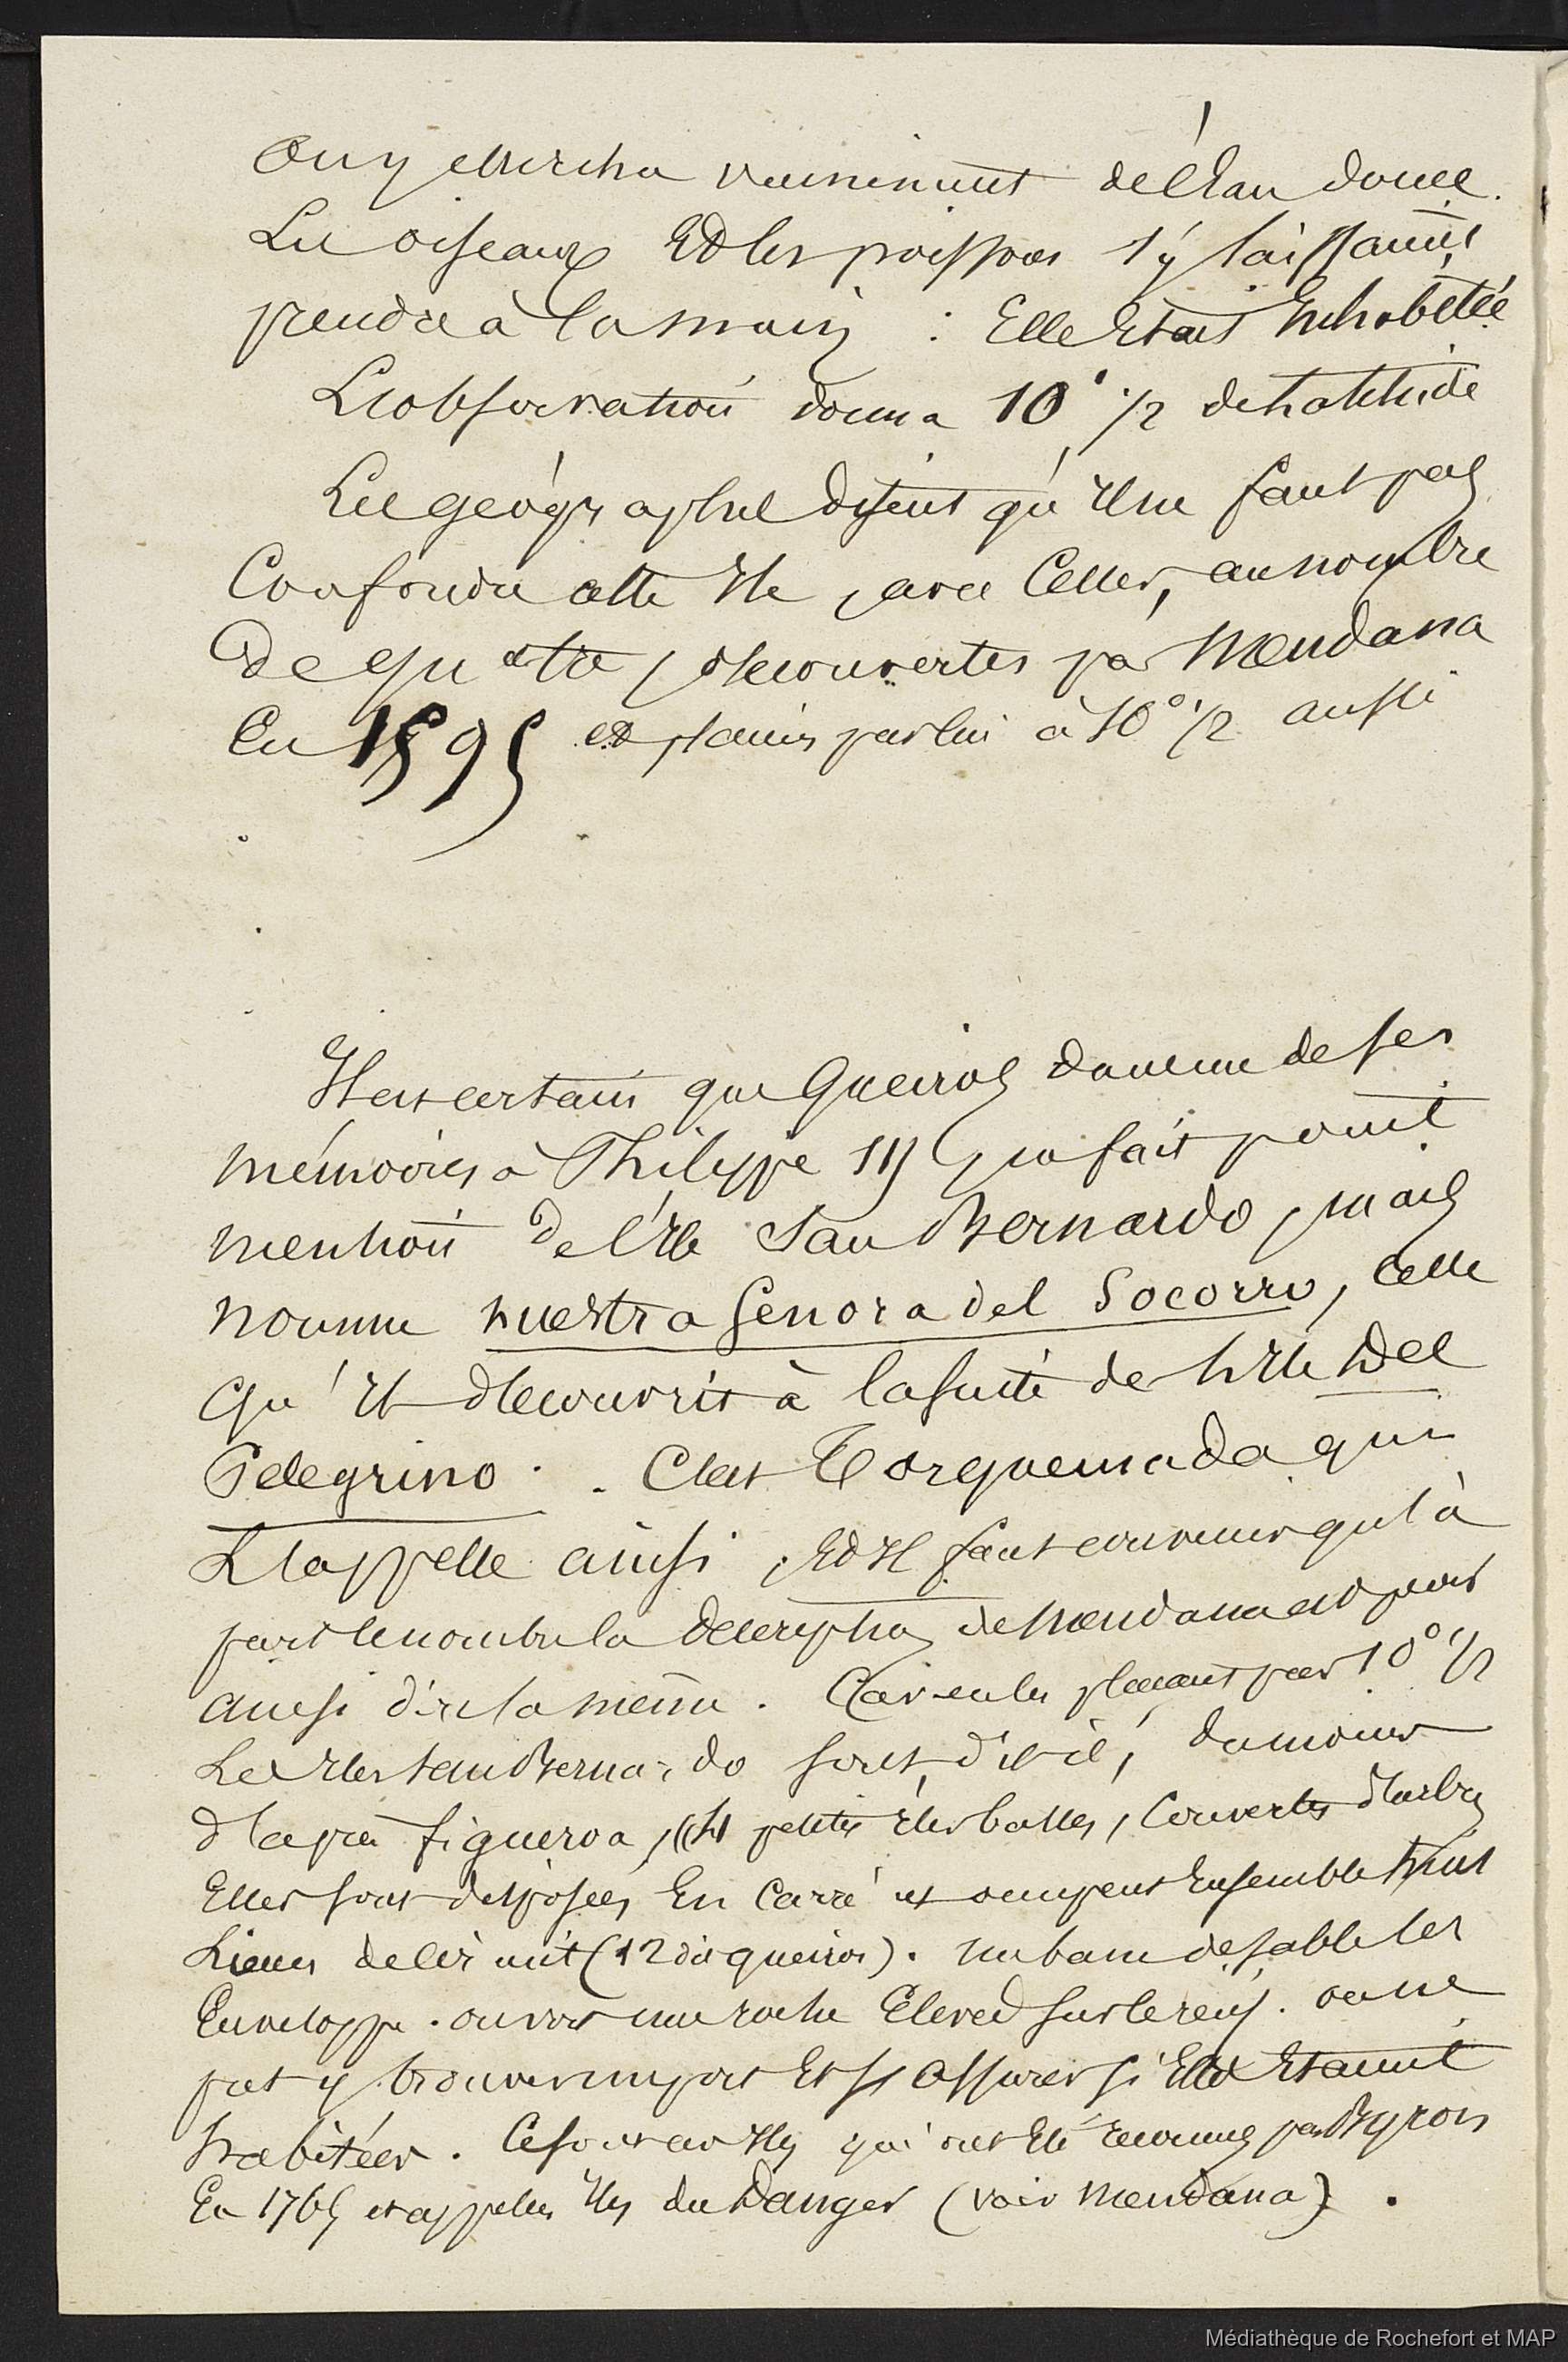 On y chercha vainement de l'Eau douce.
Les oiseaux Et les poissons s'y laissaient
prendre à la main : Elle Etait Inhabitée
L'observation donna 10° 1/2 de latitude
Les géographes disent qu'il ne faut pas
Confondre cette Ile, avec Celles, au nombre
De quatre, découvertes par Mendana
En 1595 et placées par lui à 10° 1/2 aussi
Il est certain que Queiros dans un de ses
mémoires à Philippe III, ne fait point
mention de l'Ile San Bernardo, mais
nomme nuestra Senora del Socorro, Celle
qu'il découvrit à la suite de l'Ile Del
Pelegrino. C'est Torquemada qui
L'appelle ainsi, Et Il faut convenir qu'à
part le nombre la description de Mendana est pour
ainsi dire la même. Car en les plaçant par 10° 1/2
Les Iles San Bernardo sont, dit-il, du moins
d'après figueroa, 4 petites Iles basses, Couvertes d'arbres
Elles sont disposées En Carré et occupent Ensemble huit
Lieues de circuit (12 dit queiros). un banc de sable les
Enveloppe. on voit une roche Elevée sur le récif. on ne
put y trouver un port Et s'assurer si Elles Etaient
habitées. Ce sont ces Iles qui ont Eté reconnues par Byron
En 1765 et appelées Iles du Danger (voir Mendana).
Médiathèque de Rochefort et MAP